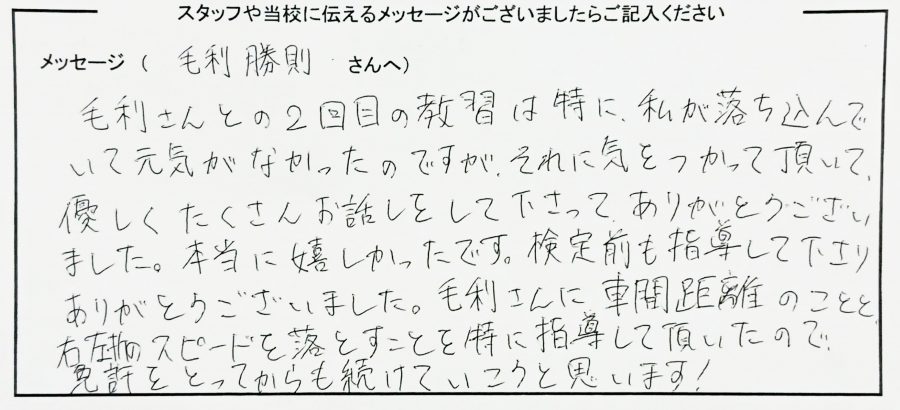 スタッフや当校に伝えるメッセージがございましたらご記入ください
メッセージ ( 毛利 勝則 さんへ)
毛利さんとの2回目の教習は特に、私が落ち込んで
いて元気がなかったのですが、それに気をつかって頂いて、
優しくたくさんお話しをして下さって、ありがとうござい
ました。本当に嬉しかったです。検定前も指導して下さり
ありがとうございました。毛利さんに車間距離のことと、
右左折のスピードを落とすことを特に指導して頂いたので、
免許をとってからも続けていこうと思います!